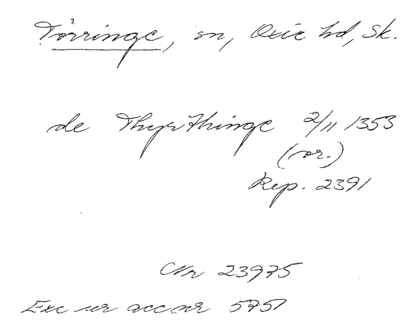 Törringe, sn, Oxie hd, Sk.
de Thyrthinge 2/11 1353
(or.)
Rep. 2391
Nr 23975
Exc ur acc nr 5751